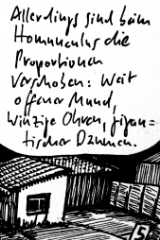 Allerdings sind beim
Homunculus die
Proportionen
verschoben: Weit
offener Mund,
winzige Ohren, gigan=
tischer Daumen.
5